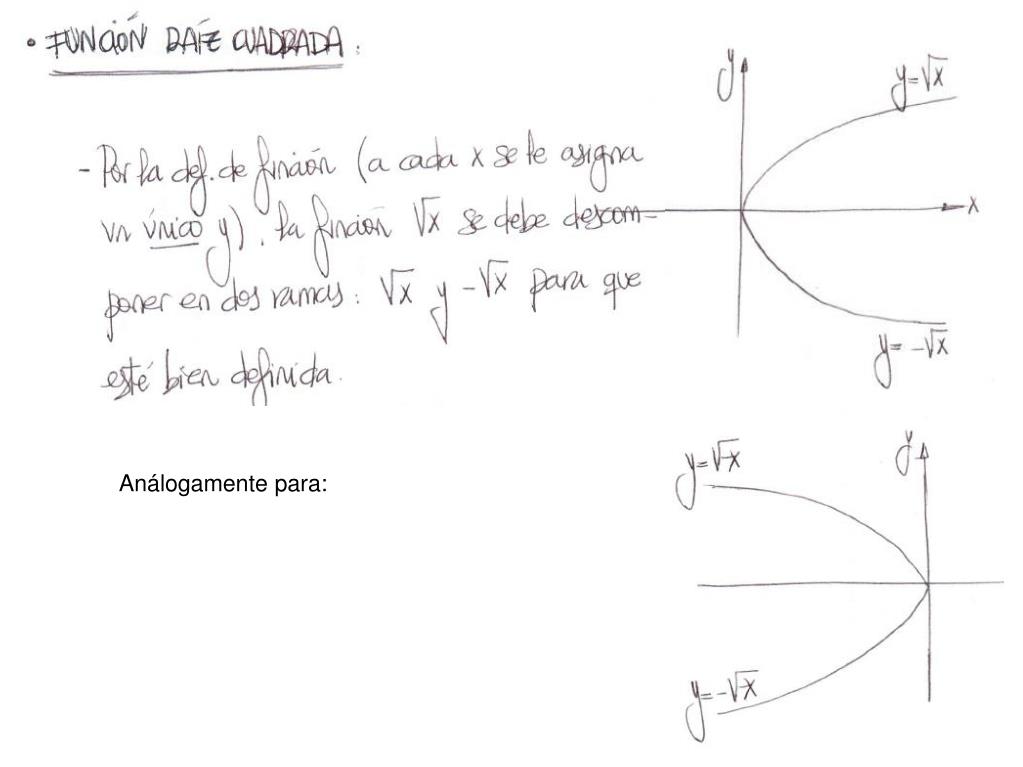 • FUNCIÓN RAÍZ CUADRADA.
- Por la def. de función (a cada x se le asigna
un único y), la función √x se debe descom-
poner en dos ramas: √x y -√x para que
esté bien definida.
y
y=√x
x
y=-√x
Análogamente para:
y=√-x
y
y=-√-x